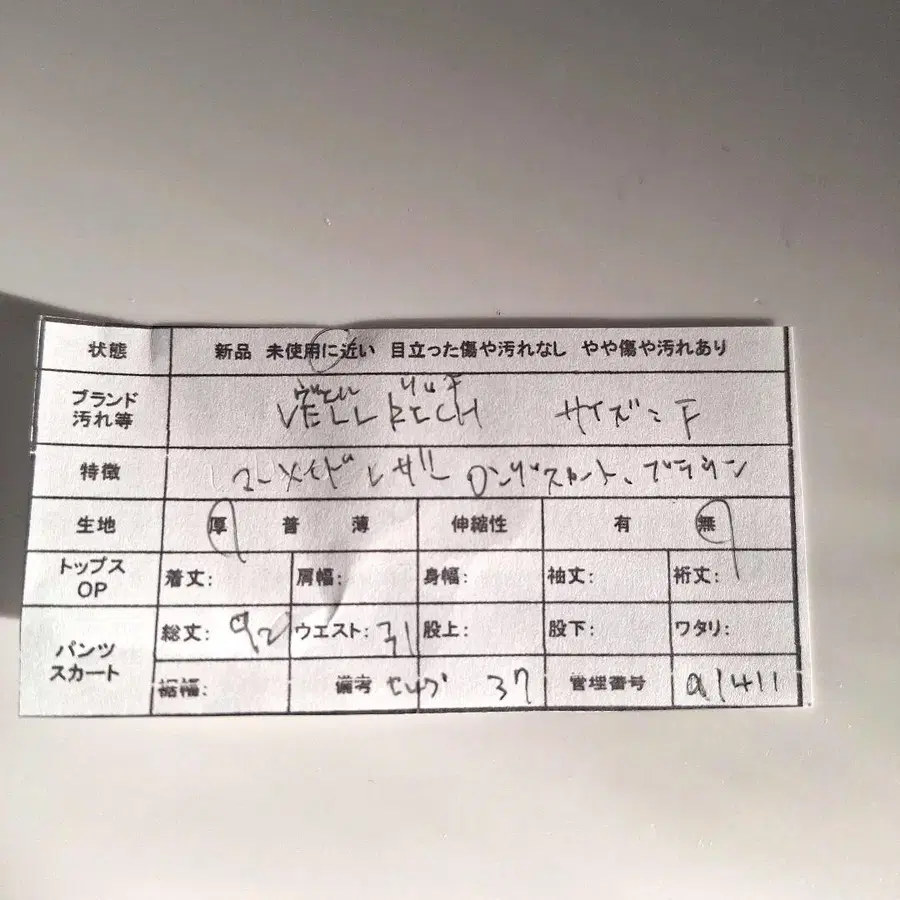 状態 新品 未使用に近い 目立った傷や汚れなし やや傷や汚れあり
ブランド 汚れ等 VELL RECH サイズ: F
特徴 マーメイド レザー ロングスカート、ブラウン
生地 厚 普 薄 伸縮性 有 無
トップス OP 着丈: 肩幅: 身幅: 袖丈: 裄丈:
パンツ スカート 総丈: 92 ウエスト: 31 股上: 股下: ワタリ:
裾幅: 備考 37 管理番号 a1411